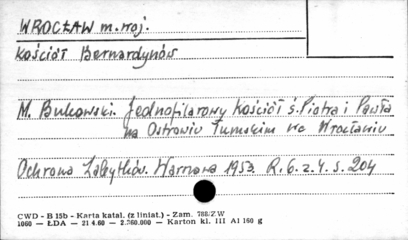 WROCŁAW m. woj.
Kościół Bernardynów
M. Bukowski. Jednofilarowy Kościół ś. Piotra i Pawła
na Ostrowiu Tumskim we Wrocławiu
Ochrona Zabytków. Warszawa 1953. R. 6. z. 4. s. 204
CWD - B 15b - Karta katal. (z liniat.) - Zam. 788/ZW
1060 — ŁDA — 21.4.60 — 2.360.000 — Karton kl. III A1 160 g